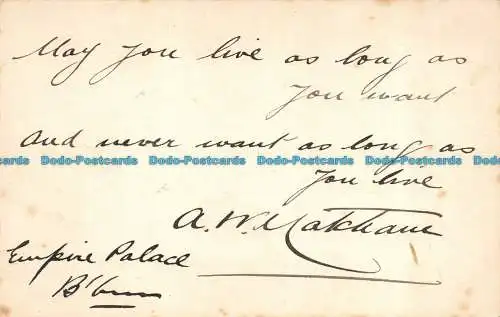 May you live as long as
you want
and never want as long as
Dodo-Postcards Dodo-Postcards Dodo-Postcards Dodo-Postcards
you live
A. W.
Empire Palace